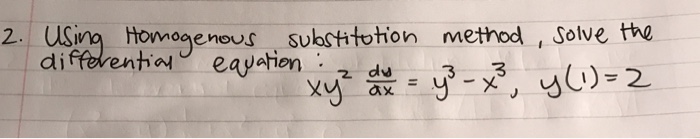 2. Using Homogenous substitution method, solve the
differential equation :
xy² dy/dx = y³ - x³, y(1) = 2